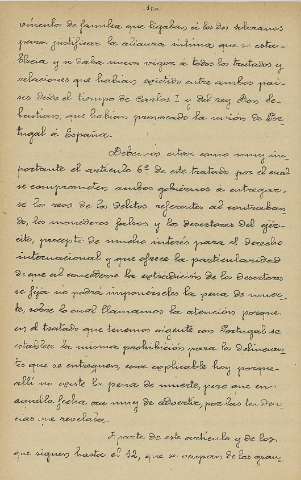 vínculo de familia que ligaban á los dos soberanos
para justificar la alianza íntima que se esta-
blece, y se daba nuevo vigor á todos los tratados y
relaciones que habían existido entre ambos paí-
ses desde el tiempo de Carlos I y del rey Don Se-
bastian, que habían preparado la unión de Por-
tugal á España.
Debemos citar como muy im-
portante el artículo 6º de este tratado por el cual
se comprometen ambos gobiernos á entregar-
se los reos de los delitos referentes al contraban-
do, los monederos falsos y los desertores del ejér-
cito, precepto de mucho interés para el derecho
internacional y que ofrece la particularidad
de que al concederse la extradición de los desertores
se fija no podrá imponérseles la pena de muer-
te, sobre lo cual llamamos la atención porque
en el tratado que tenemos vigente con Portugal se
establece la misma prohibición para los delincuen-
tes que se entreguen, cosa explicable hoy porque
allí no existe la pena de muerte, pero que en
aquella fecha era muy de advertir, por las tenden-
cias que revelaba.
Aparte de este artículo y de los
que siguen hasta el 12, que se ocupan de las gran-